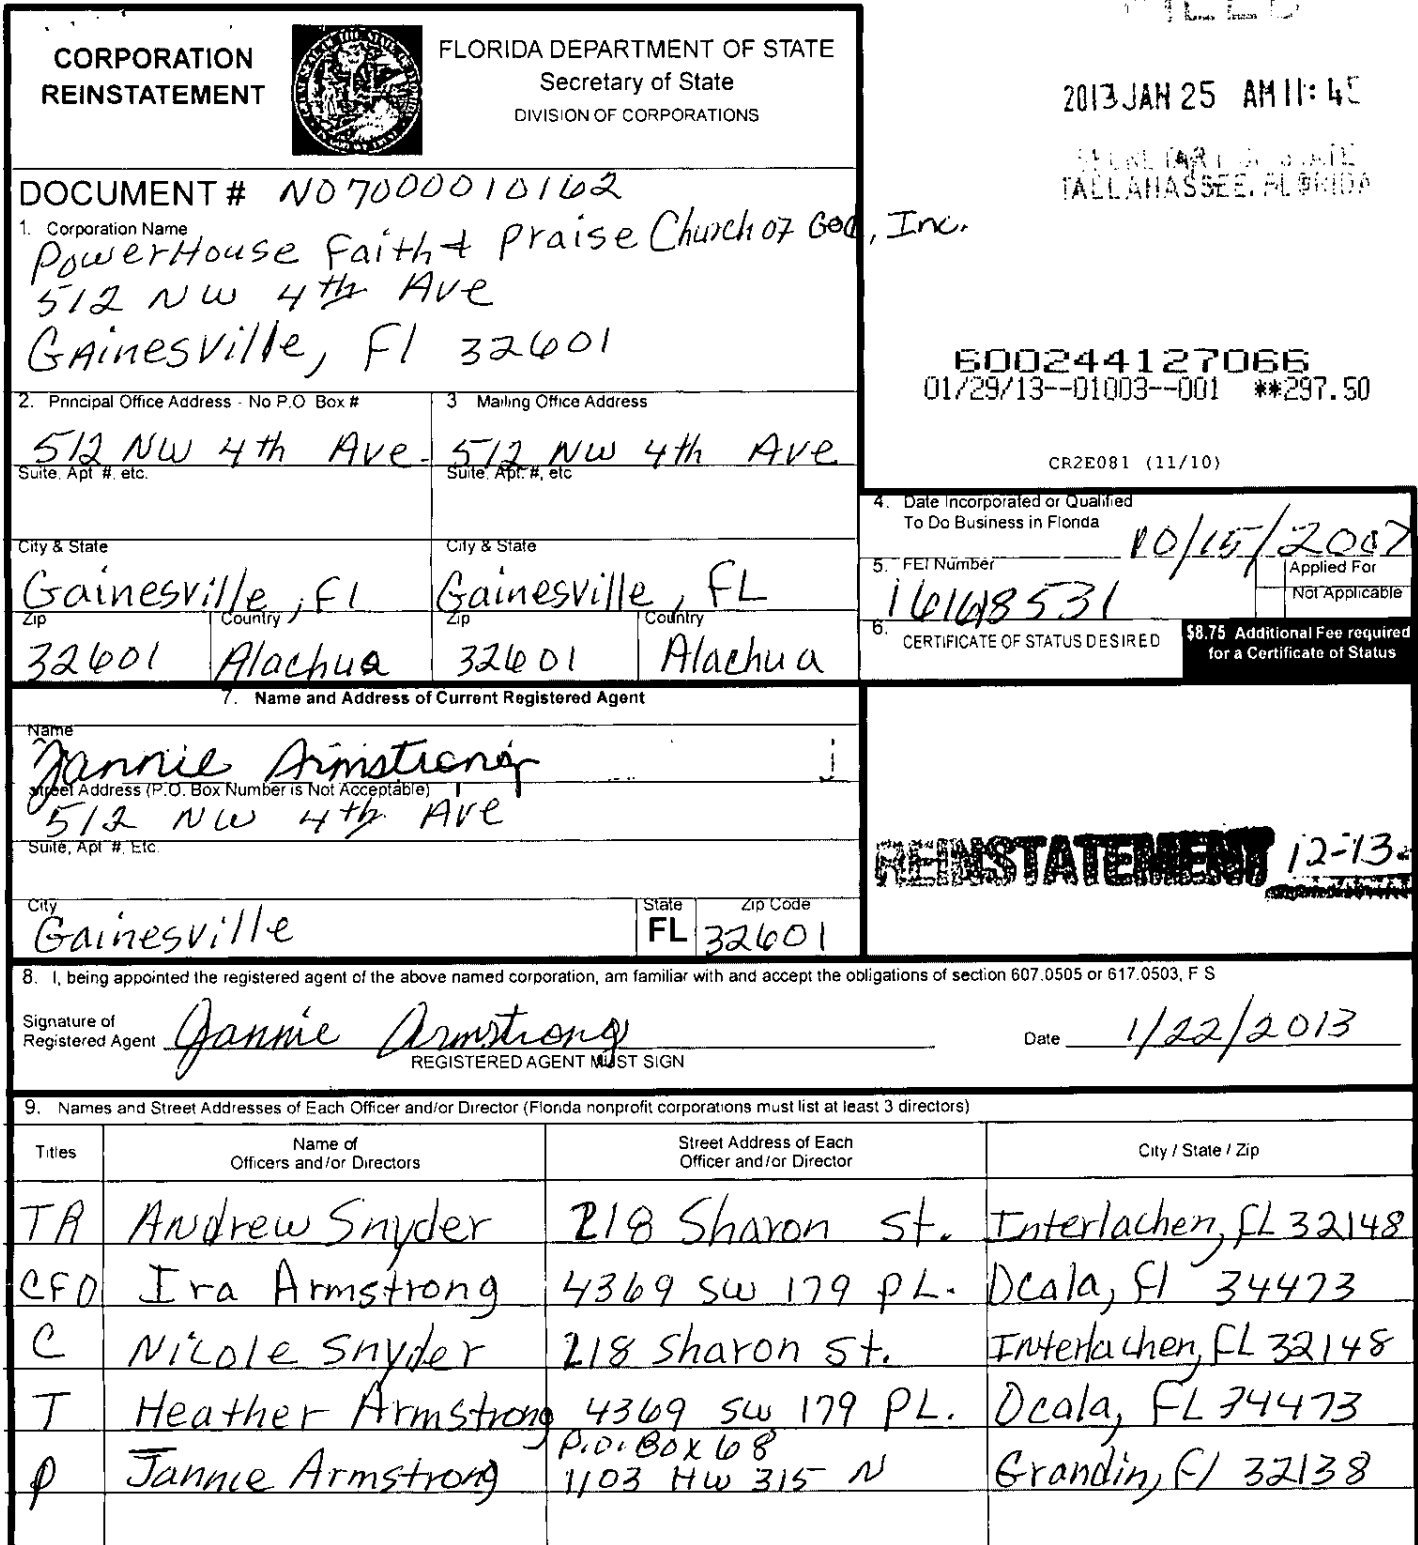 CORPORATION
REINSTATEMENT
FLORIDA DEPARTMENT OF STATE
Secretary of State
DIVISION OF CORPORATIONS
2013 JAN 25 AM 11: 45
SECRETARY OF STATE
TALLAHASSEE, FLORIDA
DOCUMENT # N07000010162
1. Corporation Name
PowerHouse Faith & Praise Church of God, Inc.
512 NW 4th Ave
Gainesville, Fl 32601
600244127066
01/29/13--01003--001 **297.50
CR2E081 (11/10)
2. Principal Office Address - No P.O Box #
512 NW 4th Ave.
Suite, Apt #, etc.
3 Mailing Office Address
512 NW 4th Ave
Suite, Apt. #, etc
City & State
Gainesville, Fl
City & State
Gainesville, FL
Zip
32601
Country
Alachua
Zip
32601
Country
Alachua
4. Date Incorporated or Qualified
To Do Business in Florida
10/15/2007
5. FEI Number
Applied For
Not Applicable
6. CERTIFICATE OF STATUS DESIRED
$8.75 Additional Fee required
for a Certificate of Status
7. Name and Address of Current Registered Agent
Name
Jannie Armstrong
Street Address (P.O. Box Number is Not Acceptable)
512 NW 4th Ave
Suite, Apt #, Etc.
City
Gainesville
State
FL
Zip Code
32601
REINSTATEMENT 12-13
8. I, being appointed the registered agent of the above named corporation, am familiar with and accept the obligations of section 607.0505 or 617.0503, F S
Signature of
Registered Agent Jannie Armstrong
REGISTERED AGENT MUST SIGN
Date 1/22/2013
9. Names and Street Addresses of Each Officer and/or Director (Florida nonprofit corporations must list at least 3 directors)
Titles
Name of
Officers and/or Directors
Street Address of Each
Officer and/or Director
City / State / Zip
TR Andrew Snyder 218 Sharon St. Interlachen, FL 32148
CFO Ira Armstrong 4369 SW 179 PL. Ocala, Fl 34473
C Nicole Snyder 218 Sharon St. Interlachen, FL 32148
T Heather Armstrong 4369 SW 179 PL. Ocala, FL 34473
P.O. Box 68
P Jannie Armstrong 1103 HW 315 N Grandin, Fl 32138